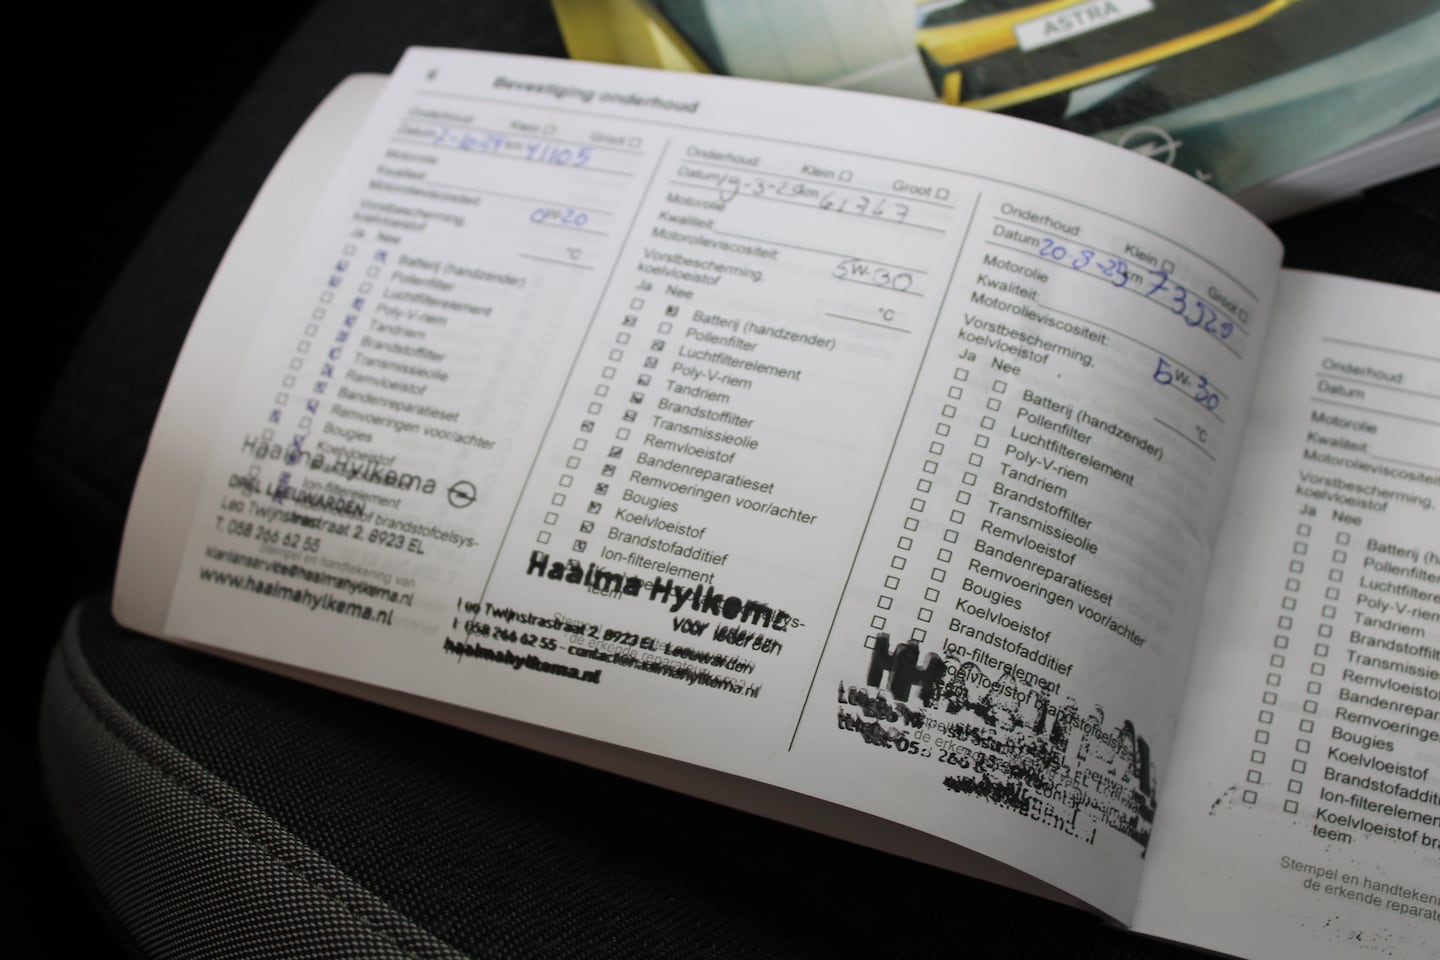 ASTRA
6 Bevestiging onderhoud
Onderhoud: Klein Groot
Datum 7-10-24 km 41105
Motorolie
Kwaliteit:
Motorolieviscositeit: 0W-20
Vorstbescherming,
koelvloeistof °C
Ja Nee
Batterij (handzender)
Pollenfilter
Luchtfilterelement
Poly-V-riem
Tandriem
Brandstoffilter
Transmissieolie
Remvloeistof
Bandenreparatieset
Remvoeringen voor/achter
Bougies
Koelvloeistof
Ion-filterelement
Haaima Hylkema
OPEL LEEUWARDEN
Leo Twijnstrastraat 2, 8923 EL
T. 058 266 62 55
Stempel en handtekening van
klantenservice@haaimahylkema.nl
www.haaimahylkema.nl
Onderhoud: Klein Groot
Datum 19-3-25 km 61767
Motorolie
Kwaliteit:
Motorolieviscositeit: 5W-30
Vorstbescherming,
koelvloeistof °C
Ja Nee
Batterij (handzender)
Pollenfilter
Luchtfilterelement
Poly-V-riem
Tandriem
Brandstoffilter
Transmissieolie
Remvloeistof
Bandenreparatieset
Remvoeringen voor/achter
Bougies
Koelvloeistof
Brandstofadditief
Ion-filterelement
Haaima Hylkema
voor iedereen
Leo Twijnstrastraat 2, 8923 EL Leeuwarden
T: 058 266 62 55 - contact@haaimahylkema.nl
haaimahylkema.nl
Onderhoud: Klein Groot
Datum 20-8-25 km
Motorolie
Kwaliteit:
Motorolieviscositeit: 5W-30
Vorstbescherming,
koelvloeistof °C
Ja Nee
Batterij (handzender)
Pollenfilter
Luchtfilterelement
Poly-V-riem
Tandriem
Brandstoffilter
Transmissieolie
Remvloeistof
Bandenreparatieset
Remvoeringen voor/achter
Bougies
Koelvloeistof
Brandstofadditief
Ion-filterelement
Koelvloeistof brandstofcelsys-
Onderhoud:
Datum
Motorolie
Kwaliteit:
Motorolieviscositeit
Vorstbescherming,
koelvloeistof
Ja Nee
Batterij (h
Pollenfilter
Luchtfiltere
Poly-V-riem
Tandriem
Brandstoffilt
Transmissie
Remvloeisto
Bandenrepar
Remvoeringe
Bougies
Koelvloeistof
Brandstofadditi
Ion-filterelemen
Koelvloeistof br
teem
Stempel en handteken
de erkende reparate